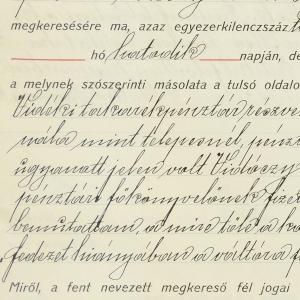 megkeresésére ma, azaz egyezerkilenczszáz
hó hatodik napján, de
a melynek szószerinti másolata a tulsó oldalo
Vidéki takarékpénztár részve
nála mint telepesnél, pénz
ugyanatt jelen volt
pénztári főkönyvelőnek fize
bemutattam, a mire tőle a ka
fedezet hiányában a váltóra f
Miről, a fent nevezett megkereső fél jogai